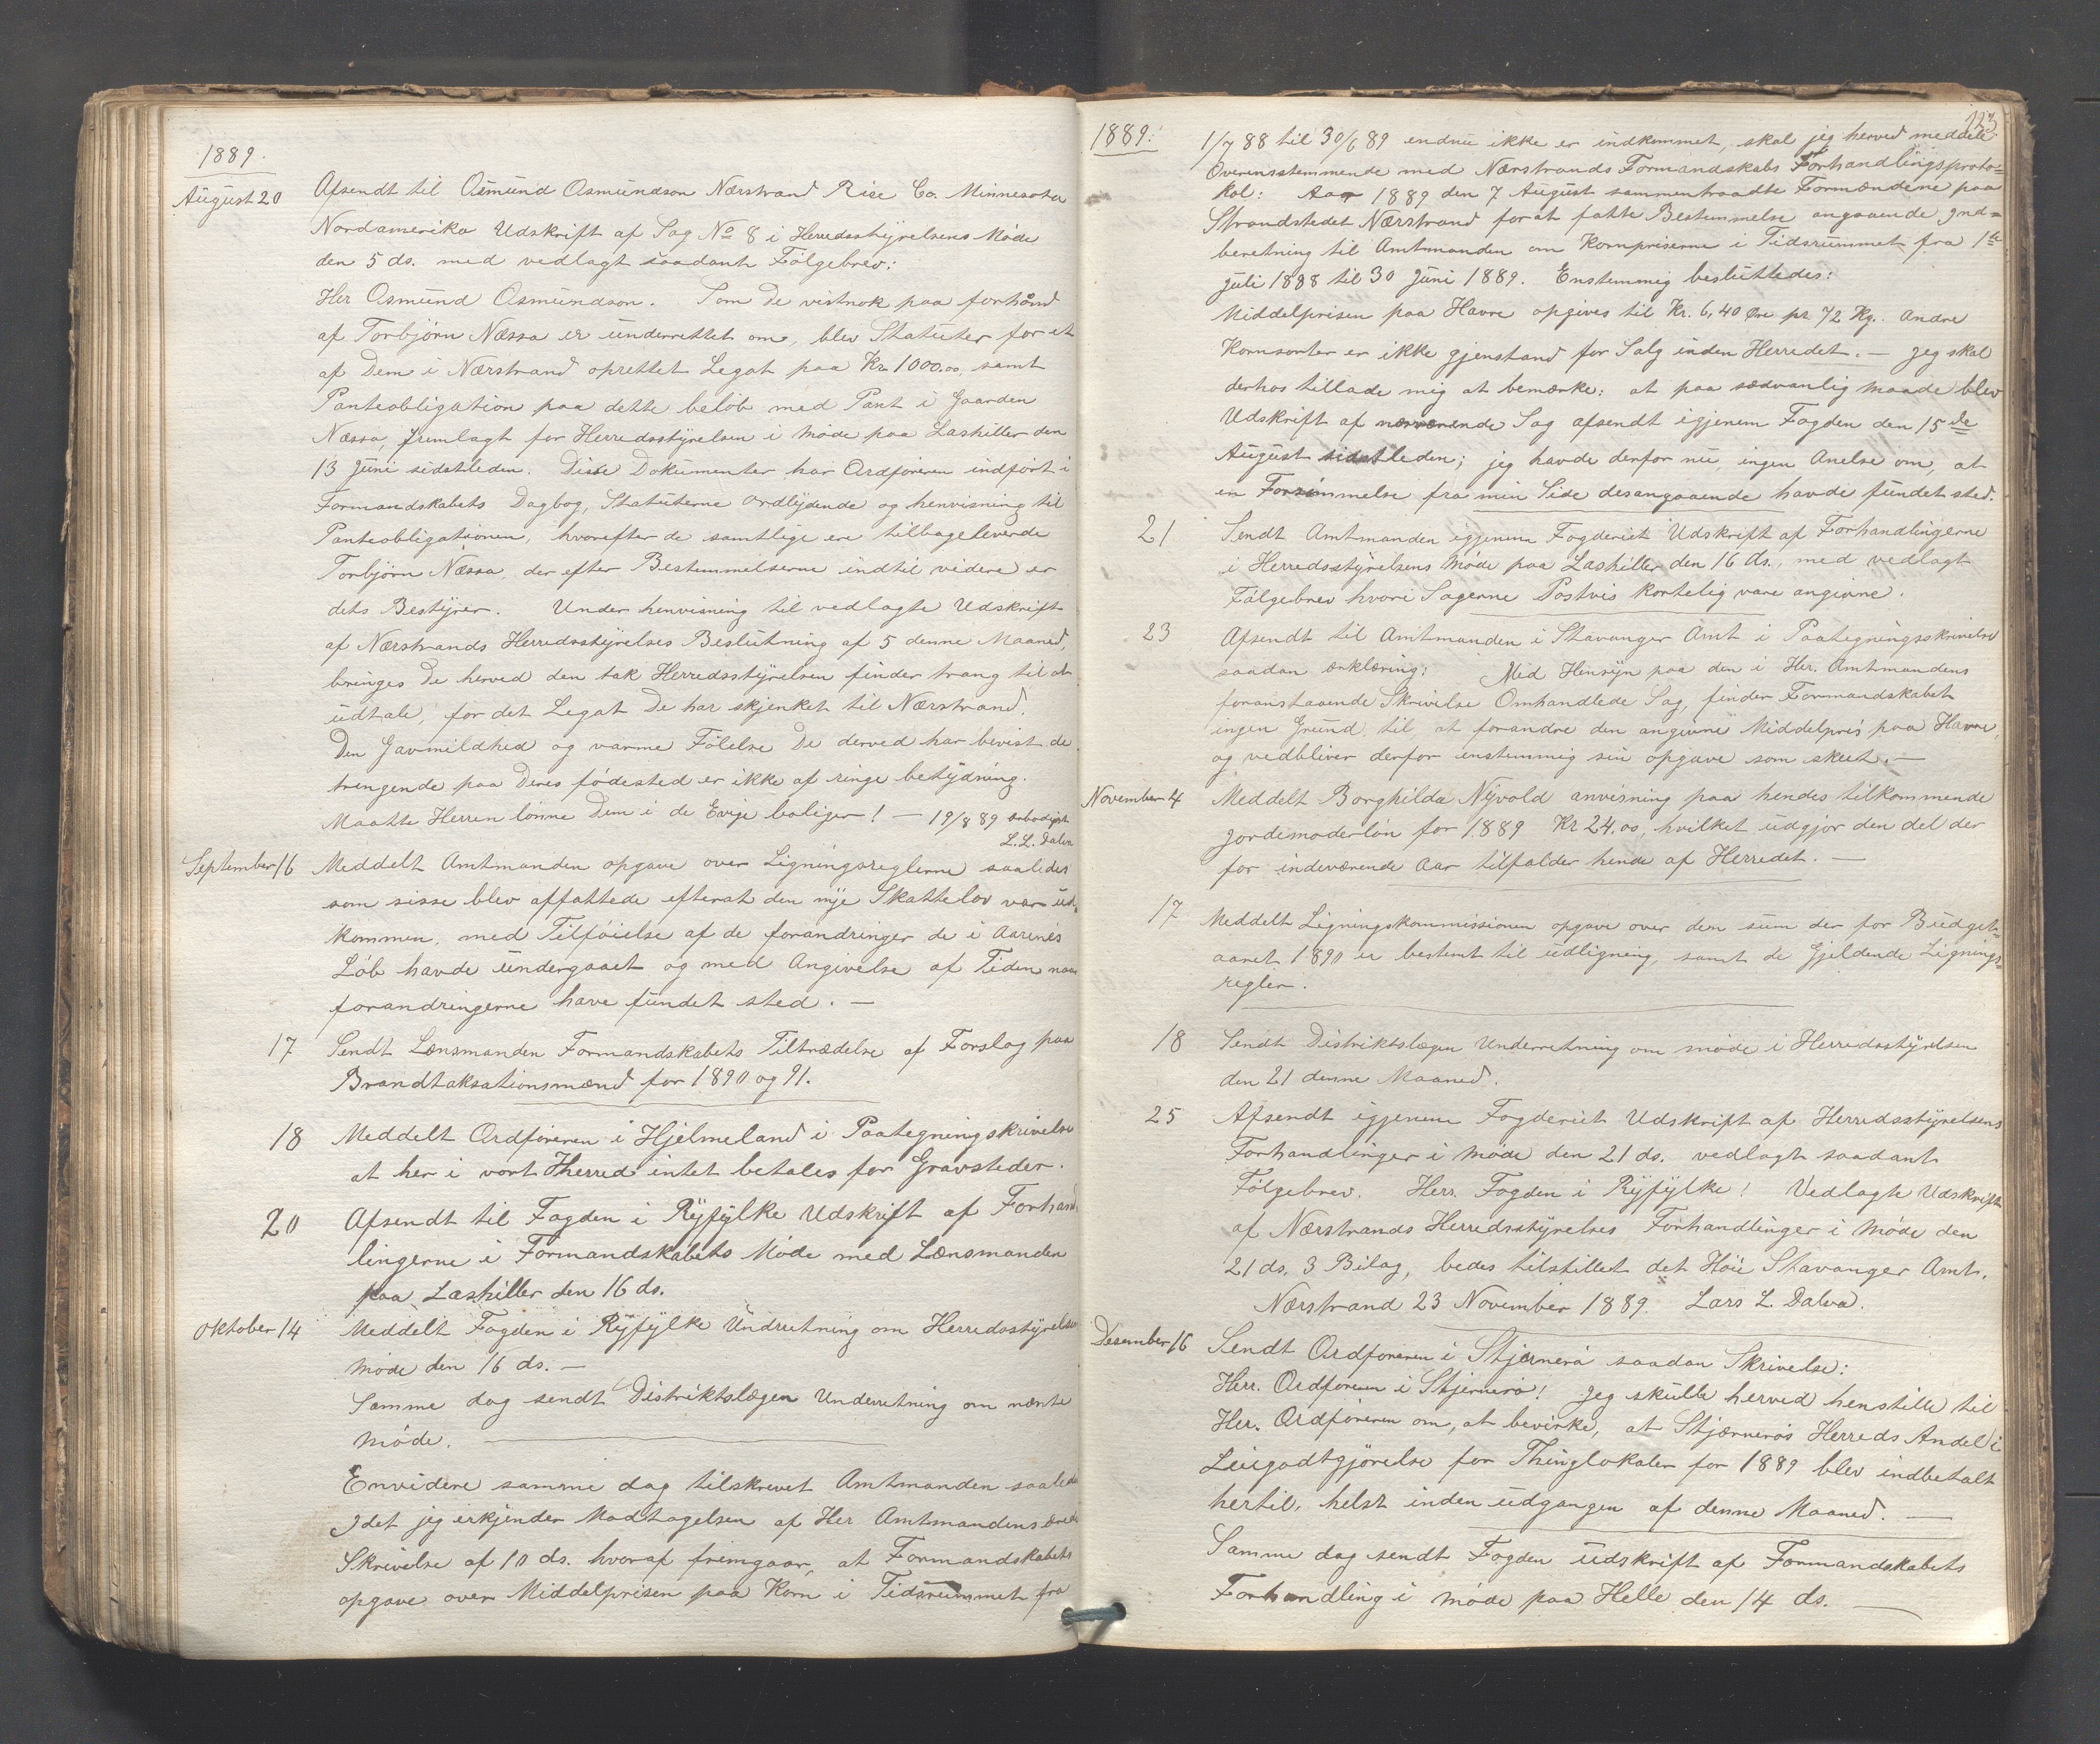 1889.
August 20 Afsendt til Osmund Osmundson Nærstrand Rise Co. Minnesota
Nordamerika Udskrift af Sag No 8 i Herredsstyrelsens Møde
den 5 ds. med vedlagt saadant Følgebrev:
Her Osmund Osmundson. Som De vistnok paa forhånd
af Torbjørn Næssa er underrettet om, blev Statuter for et
af Dem i Nærstrand oprettet Legat paa Kr. 1000.00, samt
Panteobligation paa dette beløb med Pant i Gaarden
Næssa, fremlagt for Herredsstyrelsen i Møde paa Lashiller den
13 Juni sidstleden. Disse Dokumenter har Ordføreren indført i
Formandskabets Dagbog, Statuterne ordlydende og henvisning til
Panteobligationen, hvorefter de samtlige ere tilbageleverde
Torbjørn Næssa, der efter Bestemmelserne indtil videre er
dets Bestyrer. Under henvisning til vedlagte Udskrift
af Nærstrands Herredsstyrelses Beslutning af 5 denne Maaned,
bringes De herved den tak Herredsstyrelsen finder trang til at
udtale, for det Legat De har skjenket til Nærstrand.
Den Gavmildhed og varme Følelse De derved har bevist de
trengende paa Deres fødested er ikke af ringe betydning.
Maatte Herren lønne Dem i de Evige boliger! — 19/8 89 ærbødigst
L. L. Dalva
September 16 Meddelt Amtmanden opgave over Ligningsreglerne saaledes
som sisse blev affattede efterat den nye Skattelov var ud-
kommen, med Tilføielse af de forandringer de i Aarenes
Løb havde undergaaet og med Angivelse af Tiden naar
forandringerne have fundet sted. —
17 Sendt Lensmanden Formandskabets Tiltrædelse af Forslag paa
Brandtaksationsmænd for 1890 og 91.
18 Meddelt Ordføreren i Hjelmeland i Paategningskrivelse
at her i vort Herred intet betales for Gravsteder.
20 Afsendt til Fogden i Ryfylke Udskrift af Forhand-
lingerne i Formandskabets Møde med Lænsmanden
paa Laskiller den 16 ds.
Oktober 14 Meddelt Fogden i Ryfylke Undretning om Herredsstyrelse
møde den 16 ds. —
Samme dag sendt Distriktslægen Underretning om nævnte
møde.
Envidere samme dag tilskrevet Amtmanden saaledes
Idet jeg erkjender Modtagelsen af Her Amtmandens ærede
Skrivelse af 10 ds. hvoraf fremgaar, at Formandskabets
opgave over Middelprisen paa Korn i Tidsrummet fra
123
1889.
1/7 88 til 30/6 89 endnu ikke er indkommet, skal jeg herved meddele
Overensstemmende med Nærstrands Formandskabs Forhandlingsproto=
kol: Aar 1889 den 7 August sammentraadte Formændene paa
Strandstedet Nærstrand for at fatte Bestemmelse angaaende Ind=
beretning til Amtmanden om Kornpriserne i Tidsrummet fra 1te
juli 1888 til 30 Juni 1889. Enstemmig besluttedes:
Middelprisen paa Havre opgives til Kr. 6,40 Øre pr 72 Kg. Andre
Kornsorter er ikke gjenstand for Salg inden Herredet. — Jeg skal
derhos tillade mig at bemærke: at paa sædvanlig Maade blev
Udskrift af nærværende Sag afsendt igjenem Fogden den 15de
August sidstleden; jeg havde derfor nu ingen Anelse om, at
en Forsømmelse fra min Side desangaaende havde fundet sted.
21 Sendt Amtmanden igjenem Fogderiet Udskrift af Forhandlingerne
i Herredsstyrelsens Møde paa Laskiller den 16 ds., med vedlagt
Følgebrev hvori Sagerne Postvis kortelig vare angivne.
23 Afsendt til Amtmanden i Stavanger Amt i Paategningsskrivelse
saadan erklæring: Med Hensyn paa den i Her. Amtmandens
foranstaaende Skrivelse Omhandlede Sag, finder Formandskabet
ingen Grund til, at forandre den angivne Middelpris paa Havre,
og vedbliver derfor enstemmig sin opgave som skeet. —
November 4 Meddelt Borghilda Nyvold anvisning paa hendes tilkommende
Jordemoderløn for 1889 Kr 24.00, hvilket udgjør den del der
for indeværende Aar tilfalder hende af Herredet. —
17 Meddelt Ligningskommissionen opgave over den sum der for Budget=
aaret 1890 er bestemt til udligning, samt de Gjeldende Lignings=
regler.
18 Sendt Distriktslægen Underretning om møde i Herredsstyrelsen
den 21 denne Maaned.
25 Afsendt igjenem Fogderiet Udskrift af Herredsstyrelsens
Forhandlinger i møde den 21 ds. vedlagt saadant
Følgebrev. Herr. Fogden i Ryfylke! Vedlagte Udskrift
af Nærstrands Herredsstyrelses Forhandlinger i møde den
21 ds. 3 Bilag, bedes tilstillet det Høie Stavanger Amt.
Nærstrand 23 November 1889. Lars L. Dalva.
Desember 16 Sendt Ordføreren i Stjernerø saadan Skrivelse:
Herr. Ordføreren i Stjernerø! Jeg skulle herved henstille til
Her. Ordføreren om, at bevirke, at Stjærnerøs Herreds Andel i
Leiegodtgjørelse for Thinglokaler for 1889 blev indbetalt
hertil, helst inden udgangen af denne Maaned. —
Samme dag sendt Fogden udskrift af Formandskabets
Forhandling i møde paa Helle den 14 ds. —